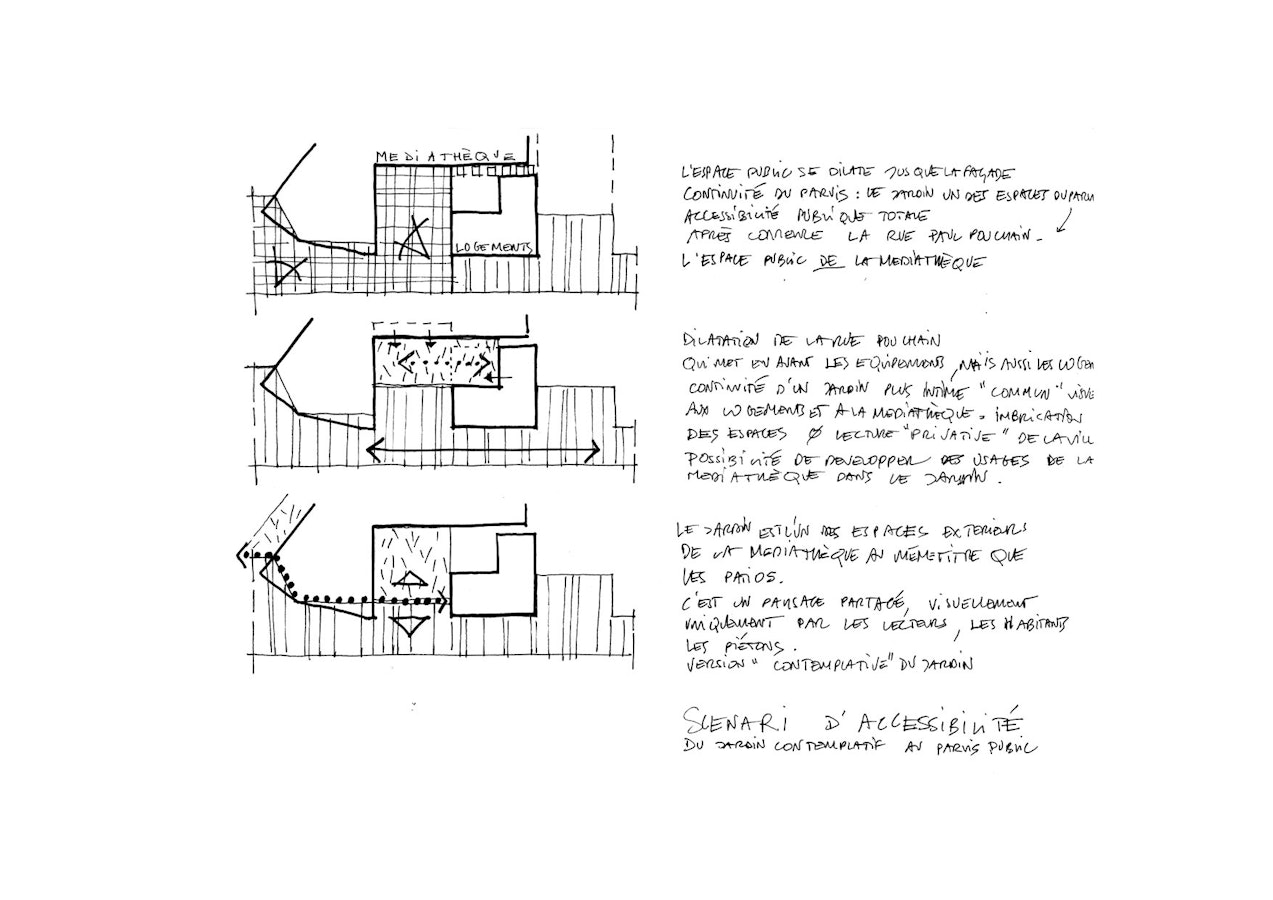 MEDIATHÈQUE
LOGEMENTS
L'ESPACE PUBLIC SE DILATE JUSQUE LA FAÇADE
CONTINUITÉ DU PARVIS : LE JARDIN UN DES ESPACES DU PARVI
ACCESSIBILITÉ PUBLIQUE TOTALE
APRÈS LA RUE PAUL POUCHAIN.
L'ESPACE PUBLIC DE LA MEDIATHÈQUE
DILATATION DE LA RUE POUCHAIN
QUI MET EN AVANT LES EQUIPEMENTS, MAIS AUSSI LES LOGEM
CONTINUITÉ D'UN JARDIN PLUS INTIME "COMMUN"
AUX LOGEMENTS ET A LA MEDIATHÈQUE. IMBRICATION
DES ESPACES Ø LECTURE "PRIVATIVE" DE LA VILL
POSSIBILITÉ DE DEVELOPPER DES USAGES DE LA
MEDIATHÈQUE DANS LE JARDIN.
LE JARDIN EST L'UN DES ESPACES EXTERIEURS
DE LA MEDIATHÈQUE AU MÊME TITRE QUE
LES PATIOS.
C'EST UN PAYSAGE PARTAGÉ, VISUELLEMENT
UNIQUEMENT PAR LES LECTEURS, LES HABITANTS
LES PIÉTONS.
VERSION "CONTEMPLATIVE" DU JARDIN
SCENARI D'ACCESSIBILITÉ
DU JARDIN CONTEMPLATIF AU PARVIS PUBLIC